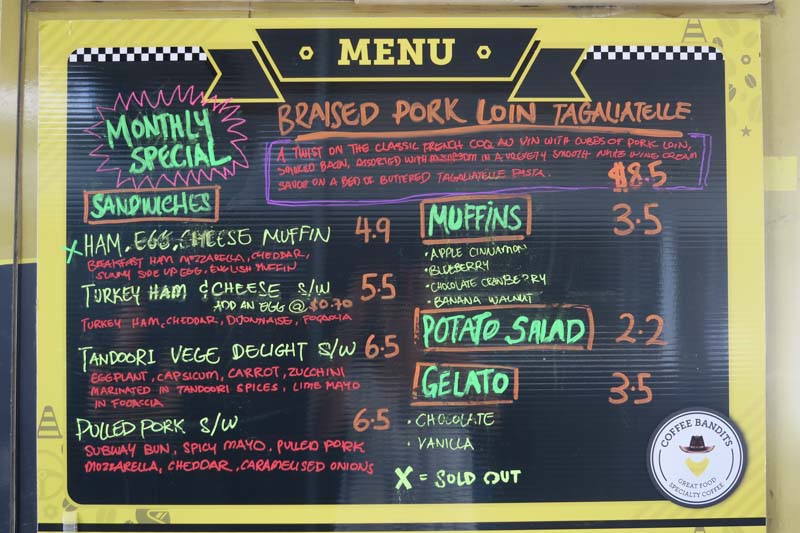 MENU
MONTHLY
SPECIAL
BRAISED PORK LOIN TAGALIATELLE
A TWIST ON THE CLASSIC FRENCH COQ AU VIN WITH CUBES OF PORK LOIN,
SMOKED BACON, ASSORTED WITH MUSHROOM IN A VELVETY SMOOTH WHITE WINE CREAM
SAUCE ON A BED OF BUTTERED TAGALIATELLE PASTA.
$8.5
SANDWICHES
X HAM, EGG, CHEESE MUFFIN 4.9
BREAKFAST HAM, MOZZARELLA, CHEDDAR,
SUNNY SIDE UP EGG, ENGLISH MUFFIN
TURKEY HAM & CHEESE S/W 5.5
ADD AN EGG @ $0.70
TURKEY HAM, CHEDDAR, DIJONNAISE, FOCACCIA
TANDOORI VEGE DELIGHT S/W 6.5
EGGPLANT, CAPSICUM, CARROT, ZUCCHINI
MARINATED IN TANDOORI SPICES, LIME MAYO
IN FOCACCIA
PULLED PORK S/W 6.5
SUBWAY BUN, SPICY MAYO, PULLED PORK
MOZZARELLA, CHEDDAR, CARAMELISED ONIONS
MUFFINS 3.5
• APPLE CINNAMON
• BLUEBERRY
• CHOCOLATE CRANBERRY
• BANANA WALNUT
POTATO SALAD 2.2
GELATO 3.5
• CHOCOLATE
• VANILLA
X = SOLD OUT
COFFEE BANDITS
GREAT FOOD
SPECIALTY COFFEE